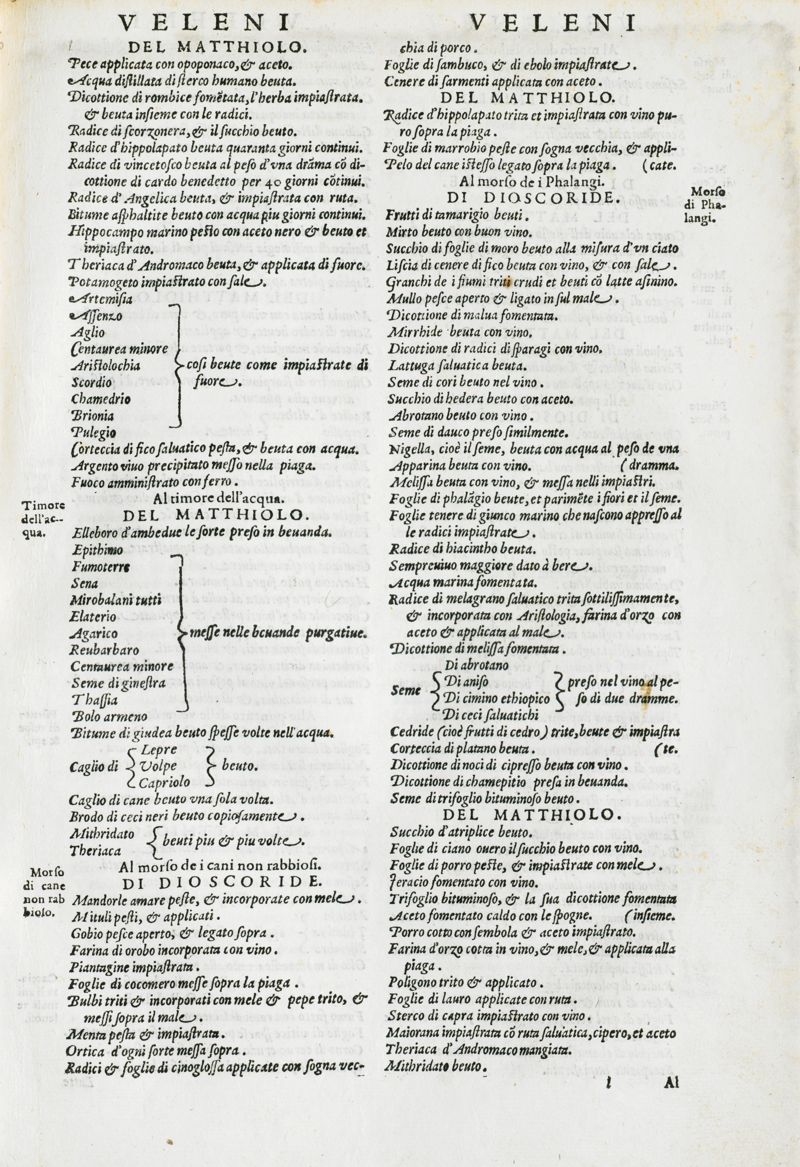 VELENI
DEL MATTHIOLO.
Pece applicata con opoponaco, & aceto.
Acqua distillata di sterco humano beuta.
Dicottione di rombice fomẽtata, l'herba impiastrata.
& beuta insieme con le radici.
Radice di scorzonera, & il succhio beuto.
Radice d'hippolapato beuta quaranta giorni continui.
Radice di vincetosco beuta al peso d'vna drãma cõ di-
cottione di cardo benedetto per 40 giorni cõtinui.
Radice d'Angelica beuta, & impiastrata con ruta.
Bitume asphaltite beuto con acqua piu giorni continui.
Hippocampo marino pesto con aceto nero & beuto et
impiastrato.
Theriaca d'Andromaco beuta, & applicata di fuore.
Potamogeto impiastrato con sale.
Artemisia
Assenzo
Aglio
Centaurea minore
Aristolochia
Scordio
Chamedrio
Brionia
Pulegio
cosi beute come impiastrate di
fuore.
Corteccia di fico saluatico pesta, & beuta con acqua.
Argento viuo precipitato messo nella piaga.
Fuoco amministrato con ferro.
Timore
dell'ac-
qua.
Al timore dell'acqua.
DEL MATTHIOLO.
Elleboro d'ambedue le sorte preso in beuanda.
Epithimo
Fumoterre
Sena
Mirobalani tutti
Elaterio
Agarico
Reubarbaro
Centaurea minore
Seme di ginestra
Thassia
Bolo armeno
messe nelle beuande purgatiue.
Bitume di giudea beuto spesse volte nell'acqua.
Caglio di
Lepre
Volpe
Capriolo
beuto.
Caglio di cane beuto vna sola volta.
Brodo di ceci neri beuto copiosamente.
Mithridato
Theriaca
beuti piu & piu volte.
Morso
di cane
non rab
bioso.
Al morso de i cani non rabbiosi.
DI DIOSCORIDE.
Mandorle amare peste, & incorporate con mele.
Mituli pesti, & applicati.
Gobio pesce aperto, & legato sopra.
Farina di orobo incorporata con vino.
Piantagine impiastrata.
Foglie di cocomero messe sopra la piaga.
Bulbi triti & incorporati con mele & pepe trito, &
messi sopra il male.
Menta pesta & impiastrata.
Ortica d'ogni sorte messa sopra.
Radici & foglie di cinoglossa applicate con sogna vec-
VELENI
chia di porco.
Foglie di sambuco, & di ebolo impiastrate.
Cenere di sarmenti applicata con aceto.
DEL MATTHIOLO.
Radice d'hippolapato trita et impiastrata con vino pu-
ro sopra la piaga.
Foglie di marrobio peste con sogna vecchia, & appli-
Pelo del cane istesso legato sopra la piaga. (cate.
Al morso de i Phalangi.
DI DIOSCORIDE.
Morso
di Pha-
langi.
Frutti di tamarigio beuti.
Mirto beuto con buon vino.
Succhio di foglie di moro beuto alla misura d'vn ciato
Liscia di cenere di fico beuta con vino, & con sale.
Granchi de i fiumi triti crudi et beuti cõ latte asinino.
Mullo pesce aperto & ligato in sul male.
Dicottione di malua fomentata.
Mirrhide beuta con vino.
Dicottione di radici di sparagi con vino.
Lattuga saluatica beuta.
Seme di cori beuto nel vino.
Succhio di hedera beuto con aceto.
Abrotano beuto con vino.
Seme di dauco preso similmente.
Nigella, cioè il seme, beuta con acqua al peso de vna
Apparina beuta con vino. (dramma.
Melissa beuta con vino, & messa nelli impiastri.
Foglie di phalãgio beute, et parimẽte i fiori et il seme.
Foglie tenere di giunco marino che nascono appresso al
le radici impiastrate.
Radice di hiacintho beuta.
Sempreuiuo maggiore dato à bere.
Acqua marina fomentata.
Radice di melagrano saluatico trita sottilissimamente,
& incorporata con Aristologia, farina d'orzo con
aceto & applicata al male.
Dicottione di melissa fomentata.
Seme
Di abrotano
Di aniso
Di cimino ethiopico
Di ceci saluatichi
preso nel vino al pe-
so di due dramme.
Cedride (cioè frutti di cedro) trite, beute & impiastra
Corteccia di platano beuta. (te.
Dicottione di noci di cipresso beuta con vino.
Dicottione di chamepitio presa in beuanda.
Seme di trifoglio bituminoso beuto.
DEL MATTHIOLO.
Succhio d'atriplice beuto.
Foglie di ciano ouero il succhio beuto con vino.
Foglie di porro peste, & impiastrate con mele.
Jeracio fomentato con vino.
Trifoglio bituminoso, & la sua dicottione fomentata
Aceto fomentato caldo con le spogne. (insieme.
Porro cotto con sembola & aceto impiastrato.
Farina d'orzo cotta in vino, & mele, & applicata alla
piaga.
Poligono trito & applicato.
Foglie di lauro applicate con ruta.
Sterco di capra impiastrato con vino.
Maiorana impiastrata cõ ruta saluatica, cipero, et aceto
Theriaca d'Andromaco mangiata.
Mithridato beuto.
l Al